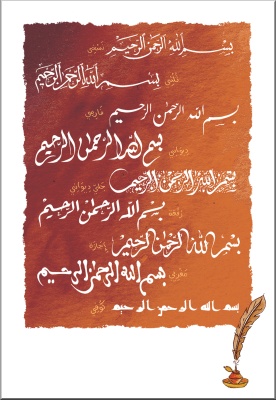 بسم الله الرحمن الرحيم نسخي
بسم الله الرحمن الرحيم ثلثي
بسم الله الرحمن الرحيم فارسي
بسم الله الرحمن الرحيم ديواني
بسم الله الرحمن الرحيم جلي ديواني
بسم الله الرحمن الرحيم رقعة
بسم الله الرحمن الرحيم إجازة
بسم الله الرحمن الرحيم مغربي
بسم الله الرحمن الرحيم كوفي